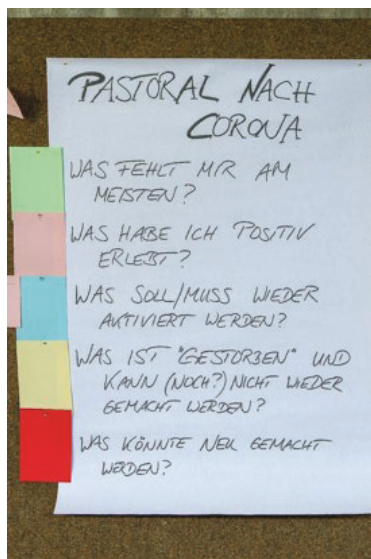 PASTORAL NACH
CORONA
WAS FEHLT MIR AM
MEISTEN?
WAS HABE ICH POSITIV
ERLEBT?
WAS SOLL/MUSS WIEDER
AKTIVIERT WERDEN?
WAS IST "GESTORBEN" UND
KANN (NOCH?) NICHT WIEDER
GEMACHT WERDEN?
WAS KÖNNTE NEU GEMACHT
WERDEN?